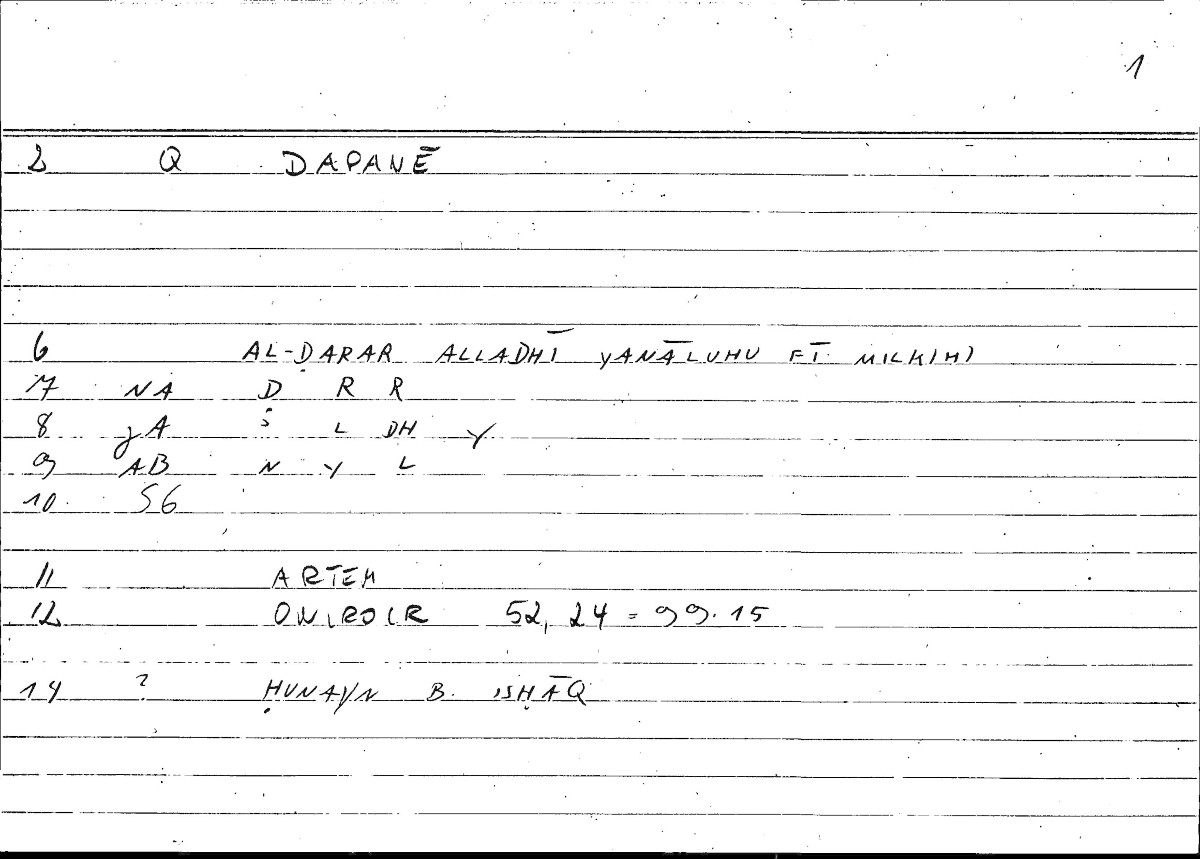 1
2 Q DAPANĒ
6 AL-ḌARAR ALLADHĪ YANĀLUHU FĪ MILKIHI
7 NA Ḍ R R
8 jA L DH Y
9 AB N Y L
10 56
11 ARTEM
12 ONIROCR 52, 24 = 99.15
14 ? ḤUNAYN B. ISḤĀQ